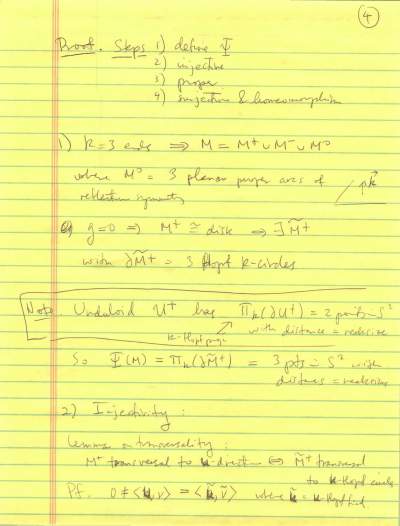 4
Proof. Steps 1) define Ψ
2) injective
3) proper
4) surjective & homeomorphism
1) k=3 ends ⟹ M = M⁺ ∪ M⁻ ∪ M⁰
where M⁰ = 3 planar proper arcs of
reflection symmetry
g=0 ⟹ M⁺ ≅ disk ⟹ ∃ M̃⁺
with ∂M̃⁺ = 3 Hopf k-circles
Note. Unduloid U⁺ has Π_k(∂Ũ⁺) = 2 points in S²
k-Hopf proj. with distance = necksize
So Ψ(M) = Π_k(∂M̃⁺) = 3 pts in S² with
distances = necksizes
2) Injectivity:
Lemma on transversality:
M⁺ transversal to k-direction ⟺ M̃⁺ transversal
to k-Hopf circles
Pf. 0 ≠ ⟨k,ν⟩ = ⟨k̃,ν̃⟩ where k̃ = k-Hopf field.